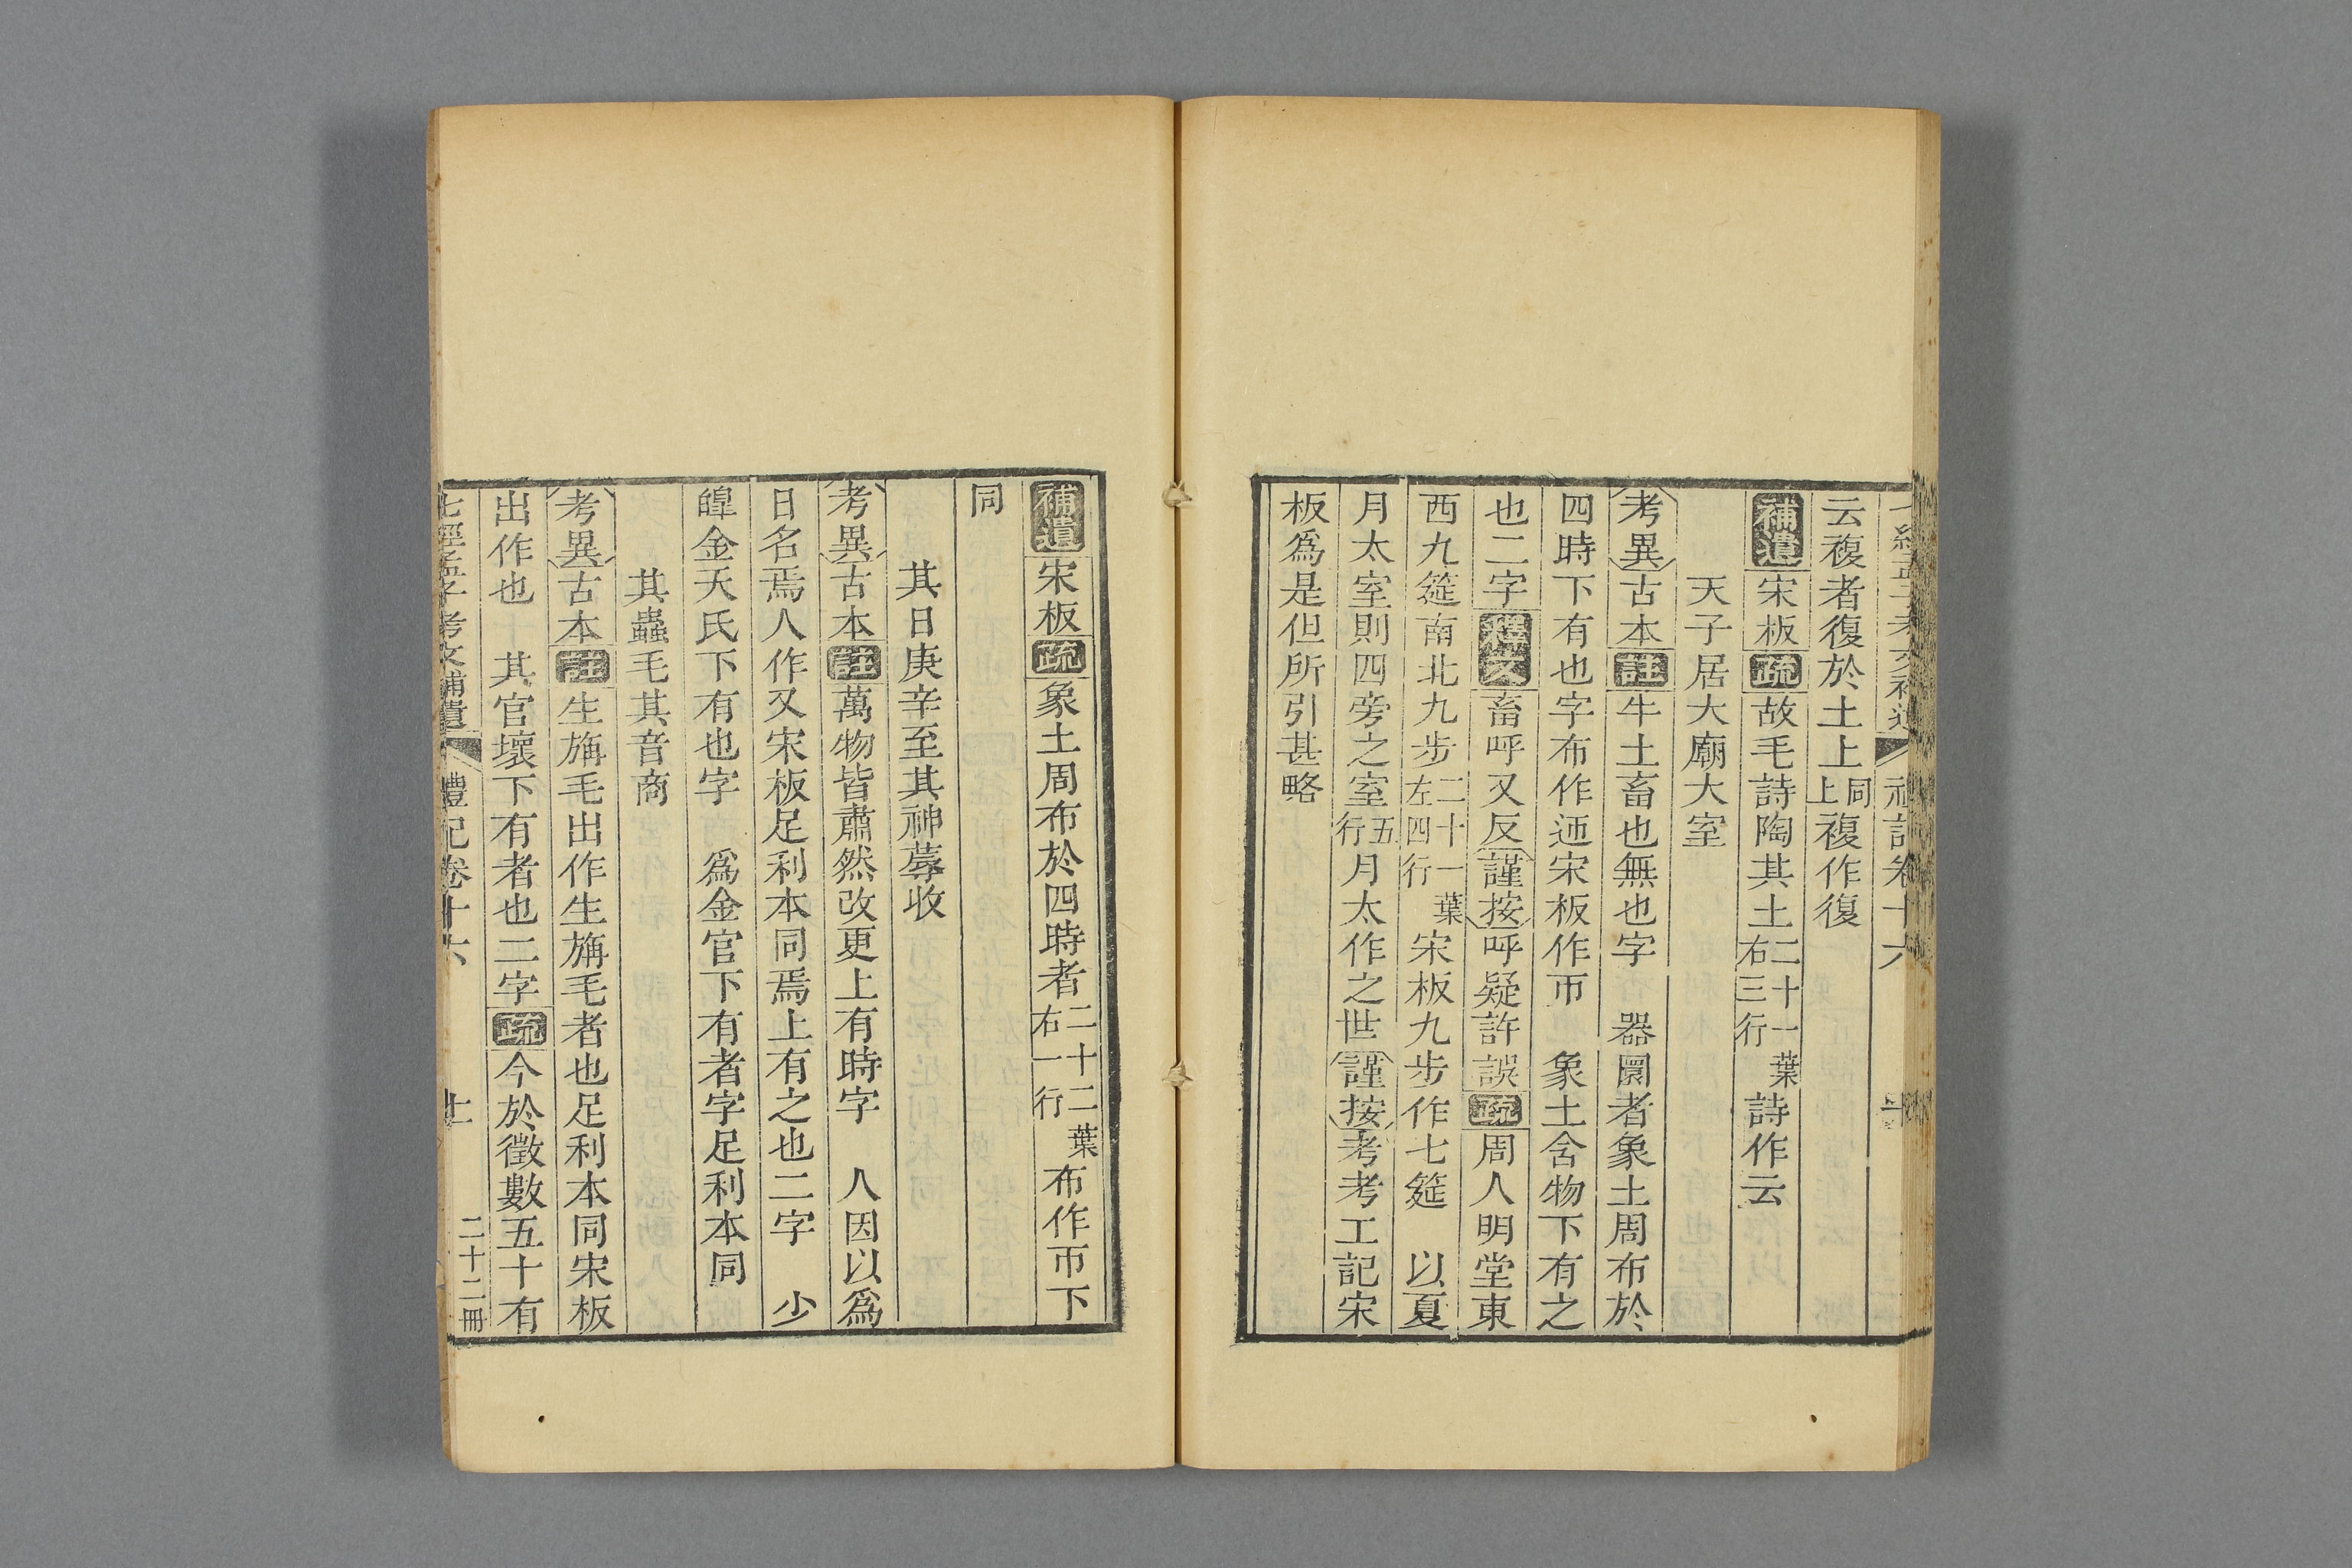 云複者復於土上同上複作復
補遺宋板疏故毛詩陶其土二十一葉右三行詩作云
天子居大廟大室
考異古本註牛土畜也無也字　器圜者象土周布於
四時下有也字布作迊宋板作帀　象土含物下有之
也二字釋文畜呼又反謹按呼疑許誤疏周人明堂東
西九筵南北九步二十一葉左四行宋板九步作七筵　以夏
月太室則四旁之室五行月太作之世謹按考考工記宋
板爲是但所引甚略
補遺宋板疏象土周布於四時者二十二葉右一行布作帀下
同
其日庚辛至其神蓐收
考異古本註萬物皆肅然改更上有時字　人因以爲
日名焉人作又宋板足利本同焉上有之也二字　少
皥金天氏下有也字　爲金官下有者字足利本同
其蟲毛其音商
考異古本註生旃毛出作生旃毛者也足利本同宋板
出作也　其官壞下有者也二字疏今於徵數五十有
七經孟子考文補遺　禮記卷十六　二十二冊